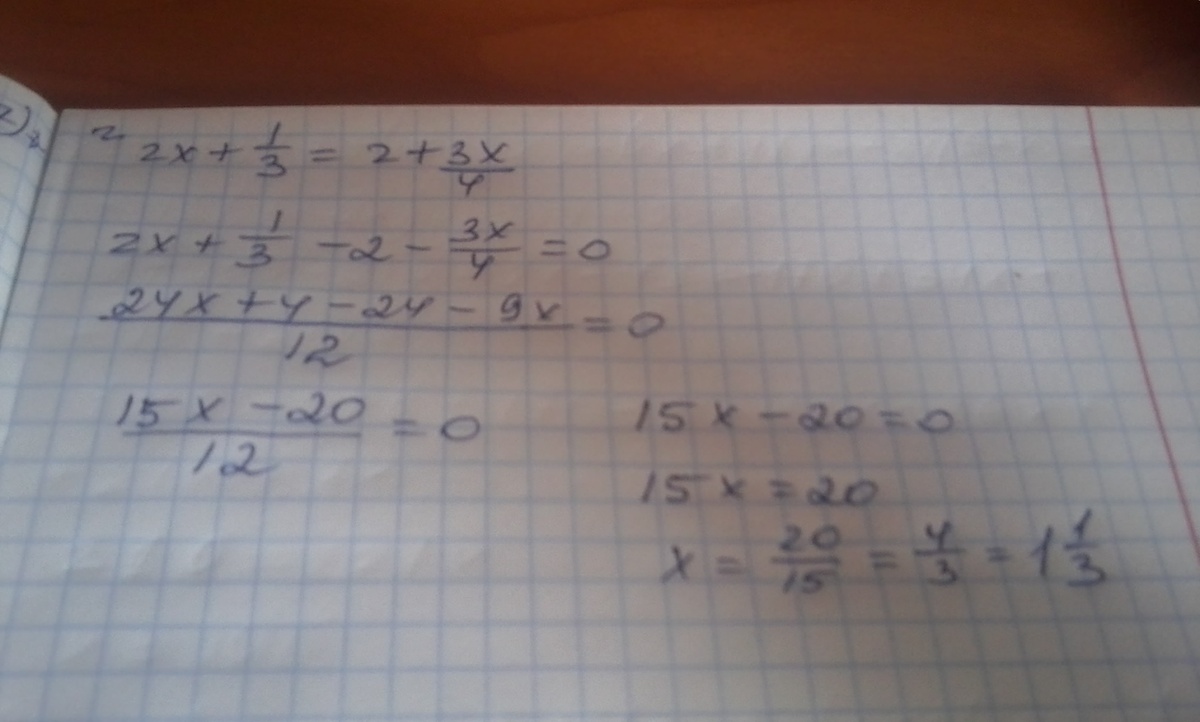 2x + 1/3 = 2 + 3x/4
2x + 1/3 - 2 - 3x/4 = 0
(24x + 4 - 24 - 9x)/12 = 0
(15x - 20)/12 = 0
15x - 20 = 0
15x = 20
x = 20/15 = 4/3 = 1 1/3